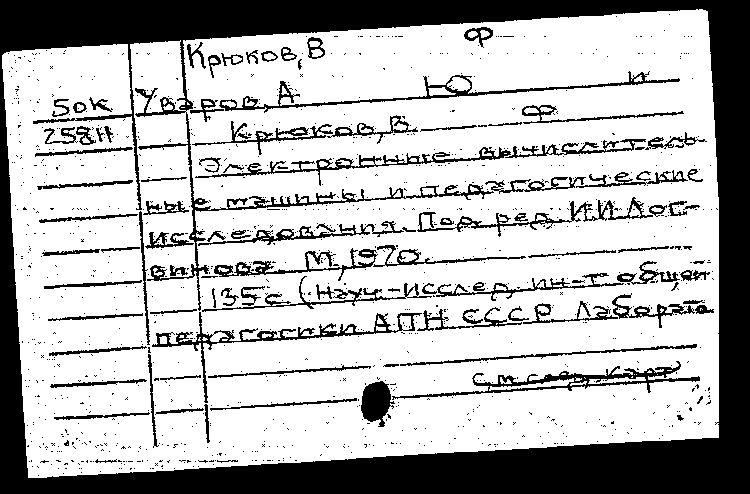 Крюков, В Ф
50к Уваров, А Ю и
258н Крюков, В. Ф
Электронные вычислитель-
ные машины и педагогические
исследования. Под ред. И.И Лог-
винова. М, 1970.
135с. (Науч.-исслед. ин-т общей
педагогики АПН СССР Лаборато
См след. карт